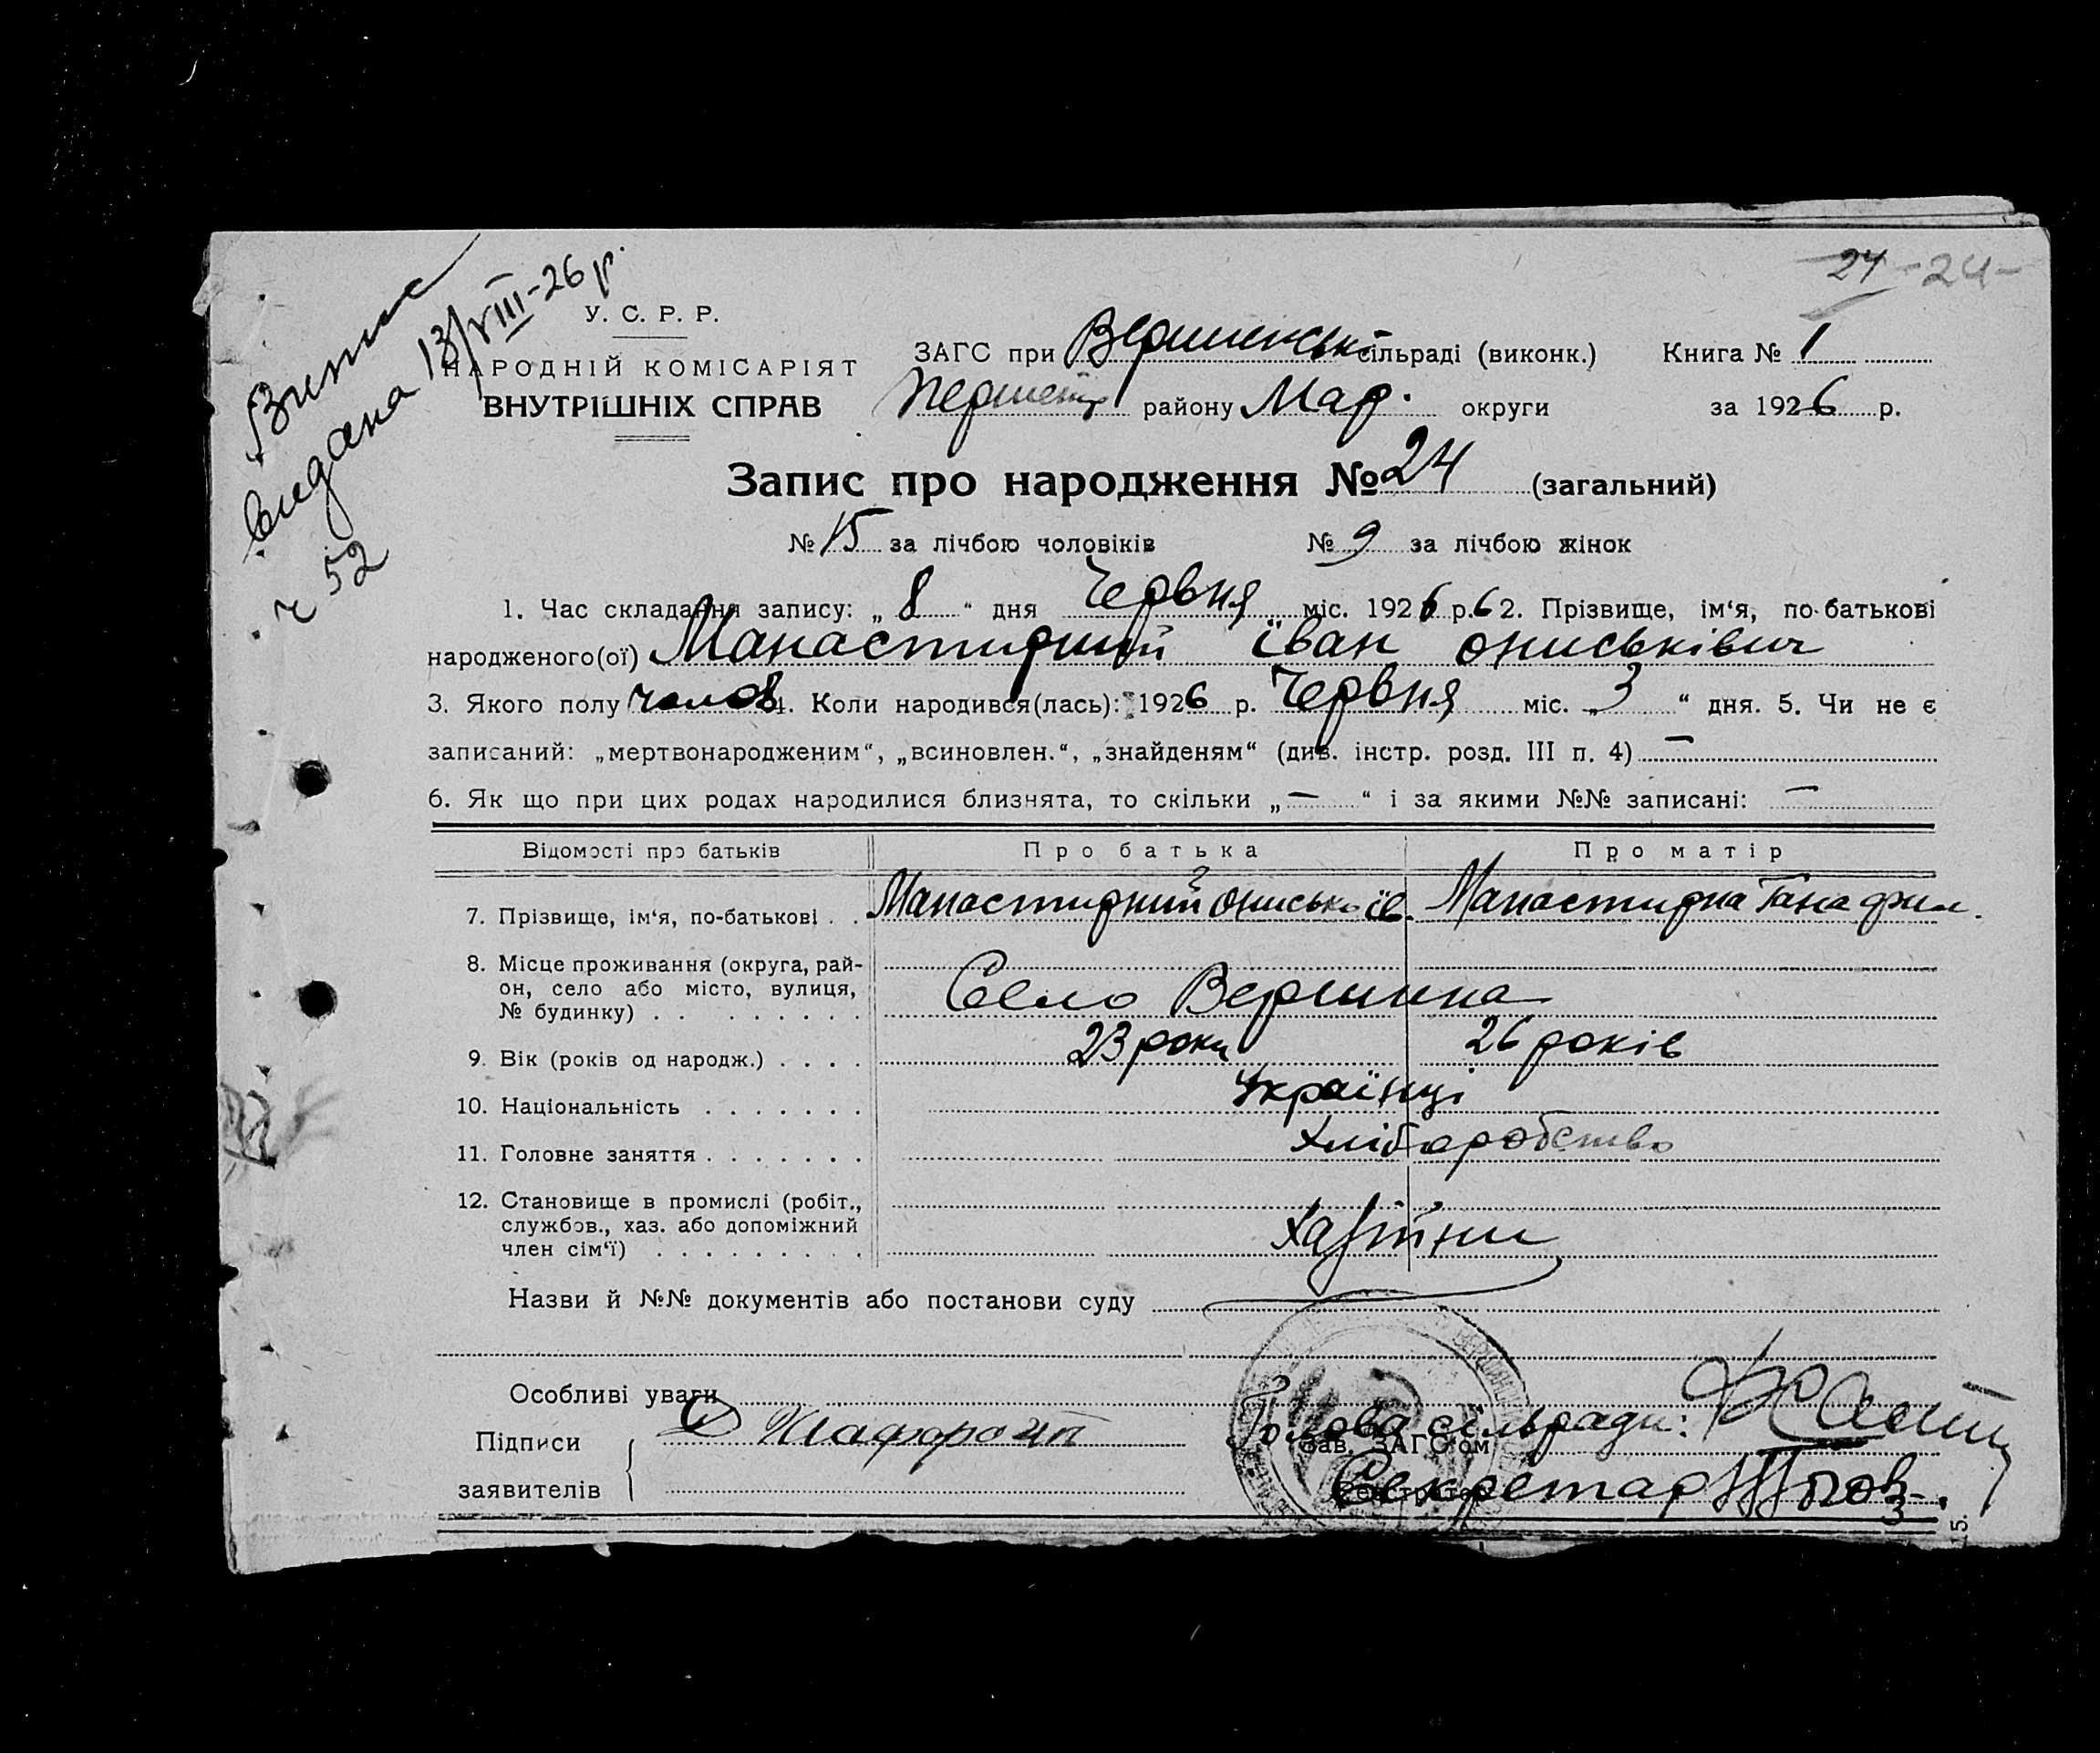 24 -24-
Випис
видана 13/VIII-26 р.
ч 52
У. С. Р. Р.
НАРОДНІЙ КОМІСАРІЯТ
ВНУТРІШНІХ СПРАВ
ЗАГС при Вершинські сільраді (виконк.) Книга № 1
району Мар. округи за 1926 р.
Запис про народження № 24 (загальний)
№ 15 за лічбою чоловіків № 9 за лічбою жінок
1. Час складання запису: „ 8 “ дня Червня міс. 1926 р. 2. Прізвище, ім‘я, по-батькові
народженого(ої) Манастирний Їван ониськівич
3. Якого полу чолов 4. Коли народився(лась): 1926 р. Червня міс. „ 3 “ дня. 5. Чи не є
записаний: „мертвонародженим“, „всиновлен.“, „знайденям“ (див. інстр. розд. III п. 4) —
6. Як що при цих родах народилися близнята, то скільки „ — “ і за якими №№ записані: —
Відомості про батьків Про батька Про матір
7. Прізвище, ім‘я, по-батькові . . Манастирний Онисько ів. Манастирна Гана фил.
8. Місце проживання (округа, рай-
он, село або місто, вулиця,
№ будинку) . . . . . . . . Село Вершина
9. Вік (років од народж.) . . . . 23 роки 26 років
10. Національність . . . . . . . Українці
11. Головне заняття . . . . . . . хліборобство
12. Становище в промислі (робіт.,
службов., хаз. або допоміжний
член сім‘ї) . . . . . . . . .
Назви й №№ документів або постанови суду
Особливі уваги
Підписи
Голова сільради:
Зав. ЗАГС‘ом
заявителів
Секретар
Реєстратор